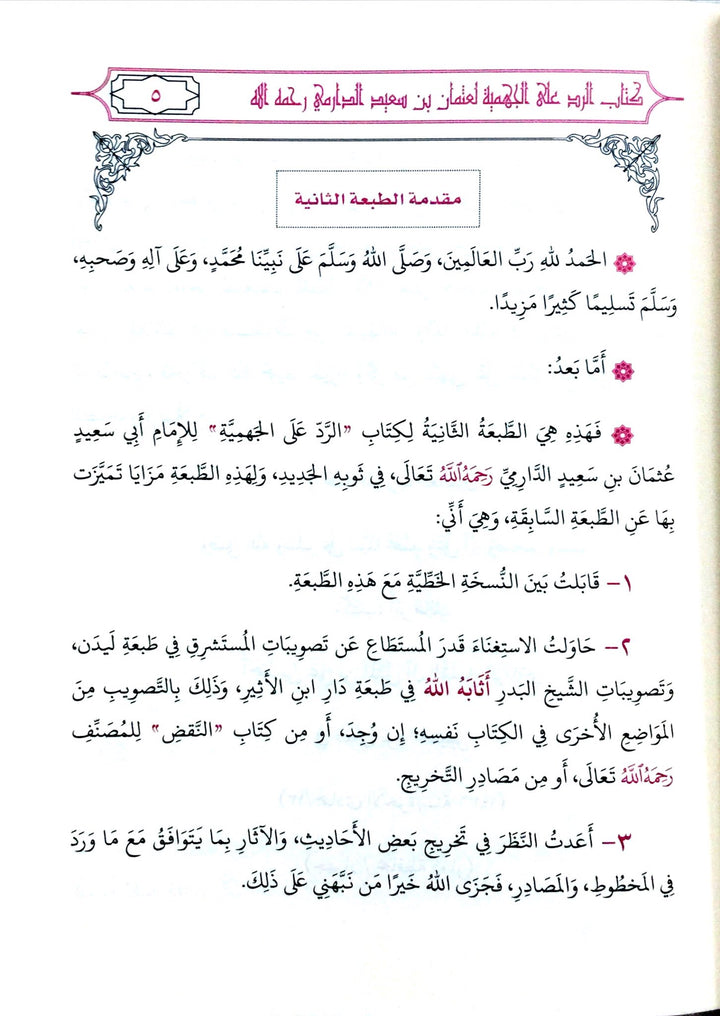 كتاب الرد على الجهمية لعثمان بن سعيد الدارمي رحمه الله
٥
مقدمة الطبعة الثانية
الحَمدُ للهِ رَبِّ العَالَمِينَ، وَصَلَّى اللهُ وَسَلَّمَ عَلَى نَبِيِّنَا مُحَمَّدٍ، وَعَلَى آلِهِ وَصَحبِهِ،
وَسَلَّمَ تَسلِيمًا كَثِيرًا مَزِيدًا.
أَمَّا بَعدُ:
فَهَذِهِ هِيَ الطَّبعَةُ الثَّانِيَةُ لِكِتَابِ «الرَّدِّ عَلَى الجَهمِيَّةِ» لِلإِمَامِ أَبِي سَعِيدٍ
عُثمَانَ بنِ سَعِيدٍ الدَّارِمِيِّ رَحِمَهُ ٱللَّهُ تَعَالَى، فِي ثَوبِهِ الجَدِيدِ، وَلِهَذِهِ الطَّبعَةِ مَزَايَا تَمَيَّزَت
بِهَا عَنِ الطَّبعَةِ السَّابِقَةِ، وَهِيَ أَنِّي:
١- قَابَلتُ بَينَ النُّسخَةِ الخَطِّيَّةِ مَعَ هَذِهِ الطَّبعَةِ.
٢- حَاوَلتُ الاستِغنَاءَ قَدرَ المُستَطَاعِ عَن تَصوِيبَاتِ المُستَشرِقِ فِي طَبعَةِ لَيدَن،
وَتَصوِيبَاتِ الشَّيخِ البَدرِ أَثَابَهُ اللهُ فِي طَبعَةِ دَارِ ابنِ الأَثِيرِ، وَذَلِكَ بِالتَّصوِيبِ مِنَ
المَوَاضِعِ الأُخرَى فِي الكِتَابِ نَفسِهِ؛ إِن وُجِدَ، أَو مِن كِتَابِ «النَّقضِ» لِلمُصَنِّفِ
رَحِمَهُ ٱللَّهُ تَعَالَى، أَو مِن مَصَادِرِ التَّخرِيجِ.
٣- أَعَدتُ النَّظَرَ فِي تَخرِيجِ بَعضِ الأَحَادِيثِ، وَالآثَارِ بِمَا يَتَوَافَقُ مَعَ مَا وَرَدَ
فِي المَخطُوطِ، وَالمَصَادِرِ، فَجَزَى اللهُ خَيرًا مَن نَبَّهَنِي عَلَى ذَلِكَ.